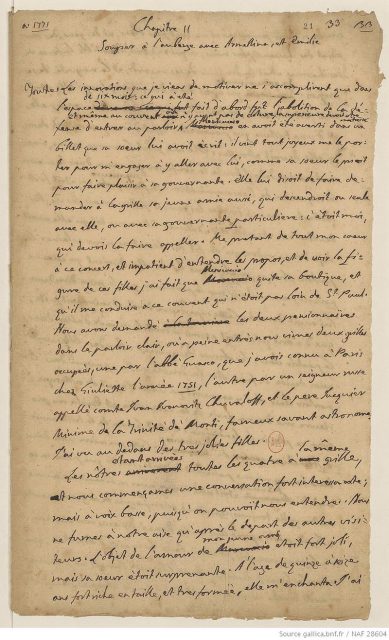 a: 1771
Chapitre II
21 33
Souper à l'auberge avec Armelline, et Emilie
Toutes les innovations que je viens de motiver ne s'accomplirent que dans
de six mois: ce qui a été
l'espace fut fait d'abord fut l'abolition de la dé-
et même au couvent
fence d'entrer au parloir; Menicuccio en avoit été averti dans un
billet que sa sœur lui avoit écrit: il vint tout joyeux me le por-
ter pour m'engager à y aller avec lui, comme sa sœur le prioit
pour faire plaisir à sa gouvernante. Elle lui disoit de faire de-
mander à la grille sa jeune amie aussi, qui descendroit ou seule
avec elle, ou avec sa gouvernante particulière: c'étoit moi,
qui devois la faire appeller. Me pretant de tout mon cœur
à ce concert, et impatient d'entendre les propos, et de voir la fi-
Menicuccio
gure de ces filles, j'ai fait que quite sa boutique, et
qu'il me conduise à ce couvent qui n'étoit pas loin de St. Paul.
Nous avons demandé les deux pensionnaires
dans le parloir clair, où a peine entrés nous vîmes deux grilles
occupées, une par l'abbé Guasco, que j'avois connu à Paris
chez Giuliette l'année 1751, l'autre par un seigneur russe
appellé comte Ivan Ivanovitz Chouvaloff, et le pere Jacquier
Minime de la Trinité de Monti, fameux savant astronome.
J'ai vu au dedans des tres jolies filles.
étant entrées la même
Les nôtres toutes les quatre à grille,
nous commençames une conversation fort interessante;
mais à voix basse, puisqu'on pouvoit nous entendre. Nous
ne fumes à notre aise qu'après le depart des autres visi-
mon jeune ami
teurs. L'objet de l'amour de étoit fort joli,
mais sa sœur étoit surprenante. A l'age de quinze a seize
ans fort riche en taille, et tres formée, elle m'enchanta. J'ai
Source gallica.bnf.fr / NAF 28604